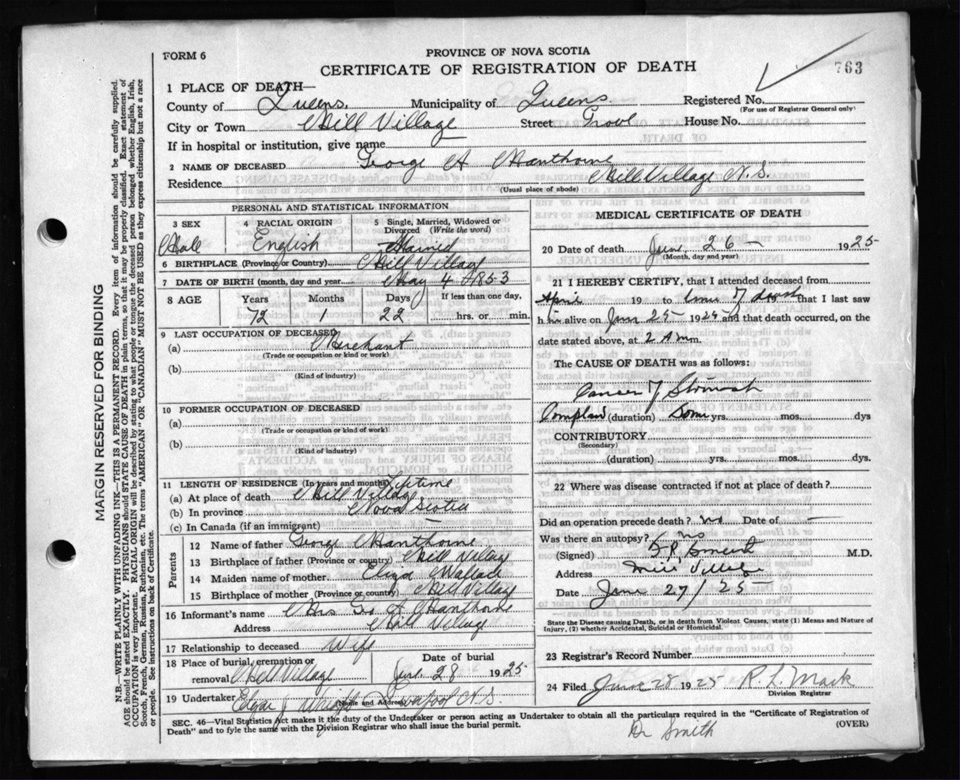 FORM 6
PROVINCE OF NOVA SCOTIA
CERTIFICATE OF REGISTRATION OF DEATH
763
1 PLACE OF DEATH—
County of Queens. Municipality of Queens Registered No.
(For use of Registrar General only)
City or Town Mill Village Street House No.
If in hospital or institution, give name
2 NAME OF DECEASED George A Manthorne
Residence Mill Village N.S.
(Usual place of abode)
PERSONAL AND STATISTICAL INFORMATION
3 SEX 4 RACIAL ORIGIN 5 Single, Married, Widowed or Divorced (Write the word)
Male English Married
6 BIRTHPLACE (Province or Country) Mill Village
7 DATE OF BIRTH (month, day and year) May 4 1853
8 AGE Years Months Days If less than one day,
72 1 22 hrs. or min.
9 LAST OCCUPATION OF DECEASED
(a) Merchant
(Trade or occupation or kind or work)
(b)
(Kind of industry)
10 FORMER OCCUPATION OF DECEASED
(a)
(Trade or occupation or kind or work)
(b)
(Kind of industry)
11 LENGTH OF RESIDENCE (In years and months) Lifetime
(a) At place of death Mill Village
(b) In province Nova Scotia
(c) In Canada (if an immigrant)
Parents
12 Name of father George Manthorne
13 Birthplace of father (Province or country) Mill Village
14 Maiden name of mother Eliza Wallace
15 Birthplace of mother (Province or country) Mill Village
16 Informant's name Mrs Geo A Manthorne
Address Mill Village
17 Relationship to deceased Wife
18 Place of burial, cremation or removal Mill Village Date of burial June 28 1925
19 Undertaker Edgar J Wright Liverpool N.S.
(Name and Address)
MEDICAL CERTIFICATE OF DEATH
20 Date of death June 26 — 1925
(Month, day and year)
21 I HEREBY CERTIFY, that I attended deceased from
April 19 to time of death that I last saw
h im alive on June 25 1925 and that death occurred, on the
date stated above, at 2 A m.
The CAUSE OF DEATH was as follows:
Cancer of Stomach
(duration) yrs. mos. dys
CONTRIBUTORY
(Secondary)
(duration) yrs. mos. dys.
22 Where was disease contracted if not at place of death?
Did an operation precede death? no Date of —
Was there an autopsy? no
(Signed) M.D.
Address Mill Village
Date June 27/25
State the Disease causing Death, or in death from Violent Causes, state (1) Means and Nature of Injury, (2) whether Accidental, Suicidal or Homicidal.
23 Registrar's Record Number
24 Filed June 28 1925 R. L. Mack
Division Registrar
SEC. 46—Vital Statistics Act makes it the duty of the Undertaker or person acting as Undertaker to obtain all the particulars required in the "Certificate of Registration of
Death" and to fyle the same with the Division Registrar who shall issue the burial permit. (OVER)
Dr Smith
MARGIN RESERVED FOR BINDING
N.B.—WRITE PLAINLY WITH UNFADING INK—THIS IS A PERMANENT RECORD. Every item of information should be carefully supplied.
AGE should be stated EXACTLY. PHYSICIANS should STATE CAUSE OF DEATH in plain terms, so that it may be properly classified. Exact statement of
OCCUPATION is very important. RACIAL ORIGIN will be described by stating to what people or tongue the deceased person belonged whether English, Irish,
Scotch, French, German, Russian, Ruthenian, etc. The terms "AMERICAN" OR "CANADIAN" MUST NOT BE USED as they express citizenship but not a race
or people. See instructions on back of Certificate.